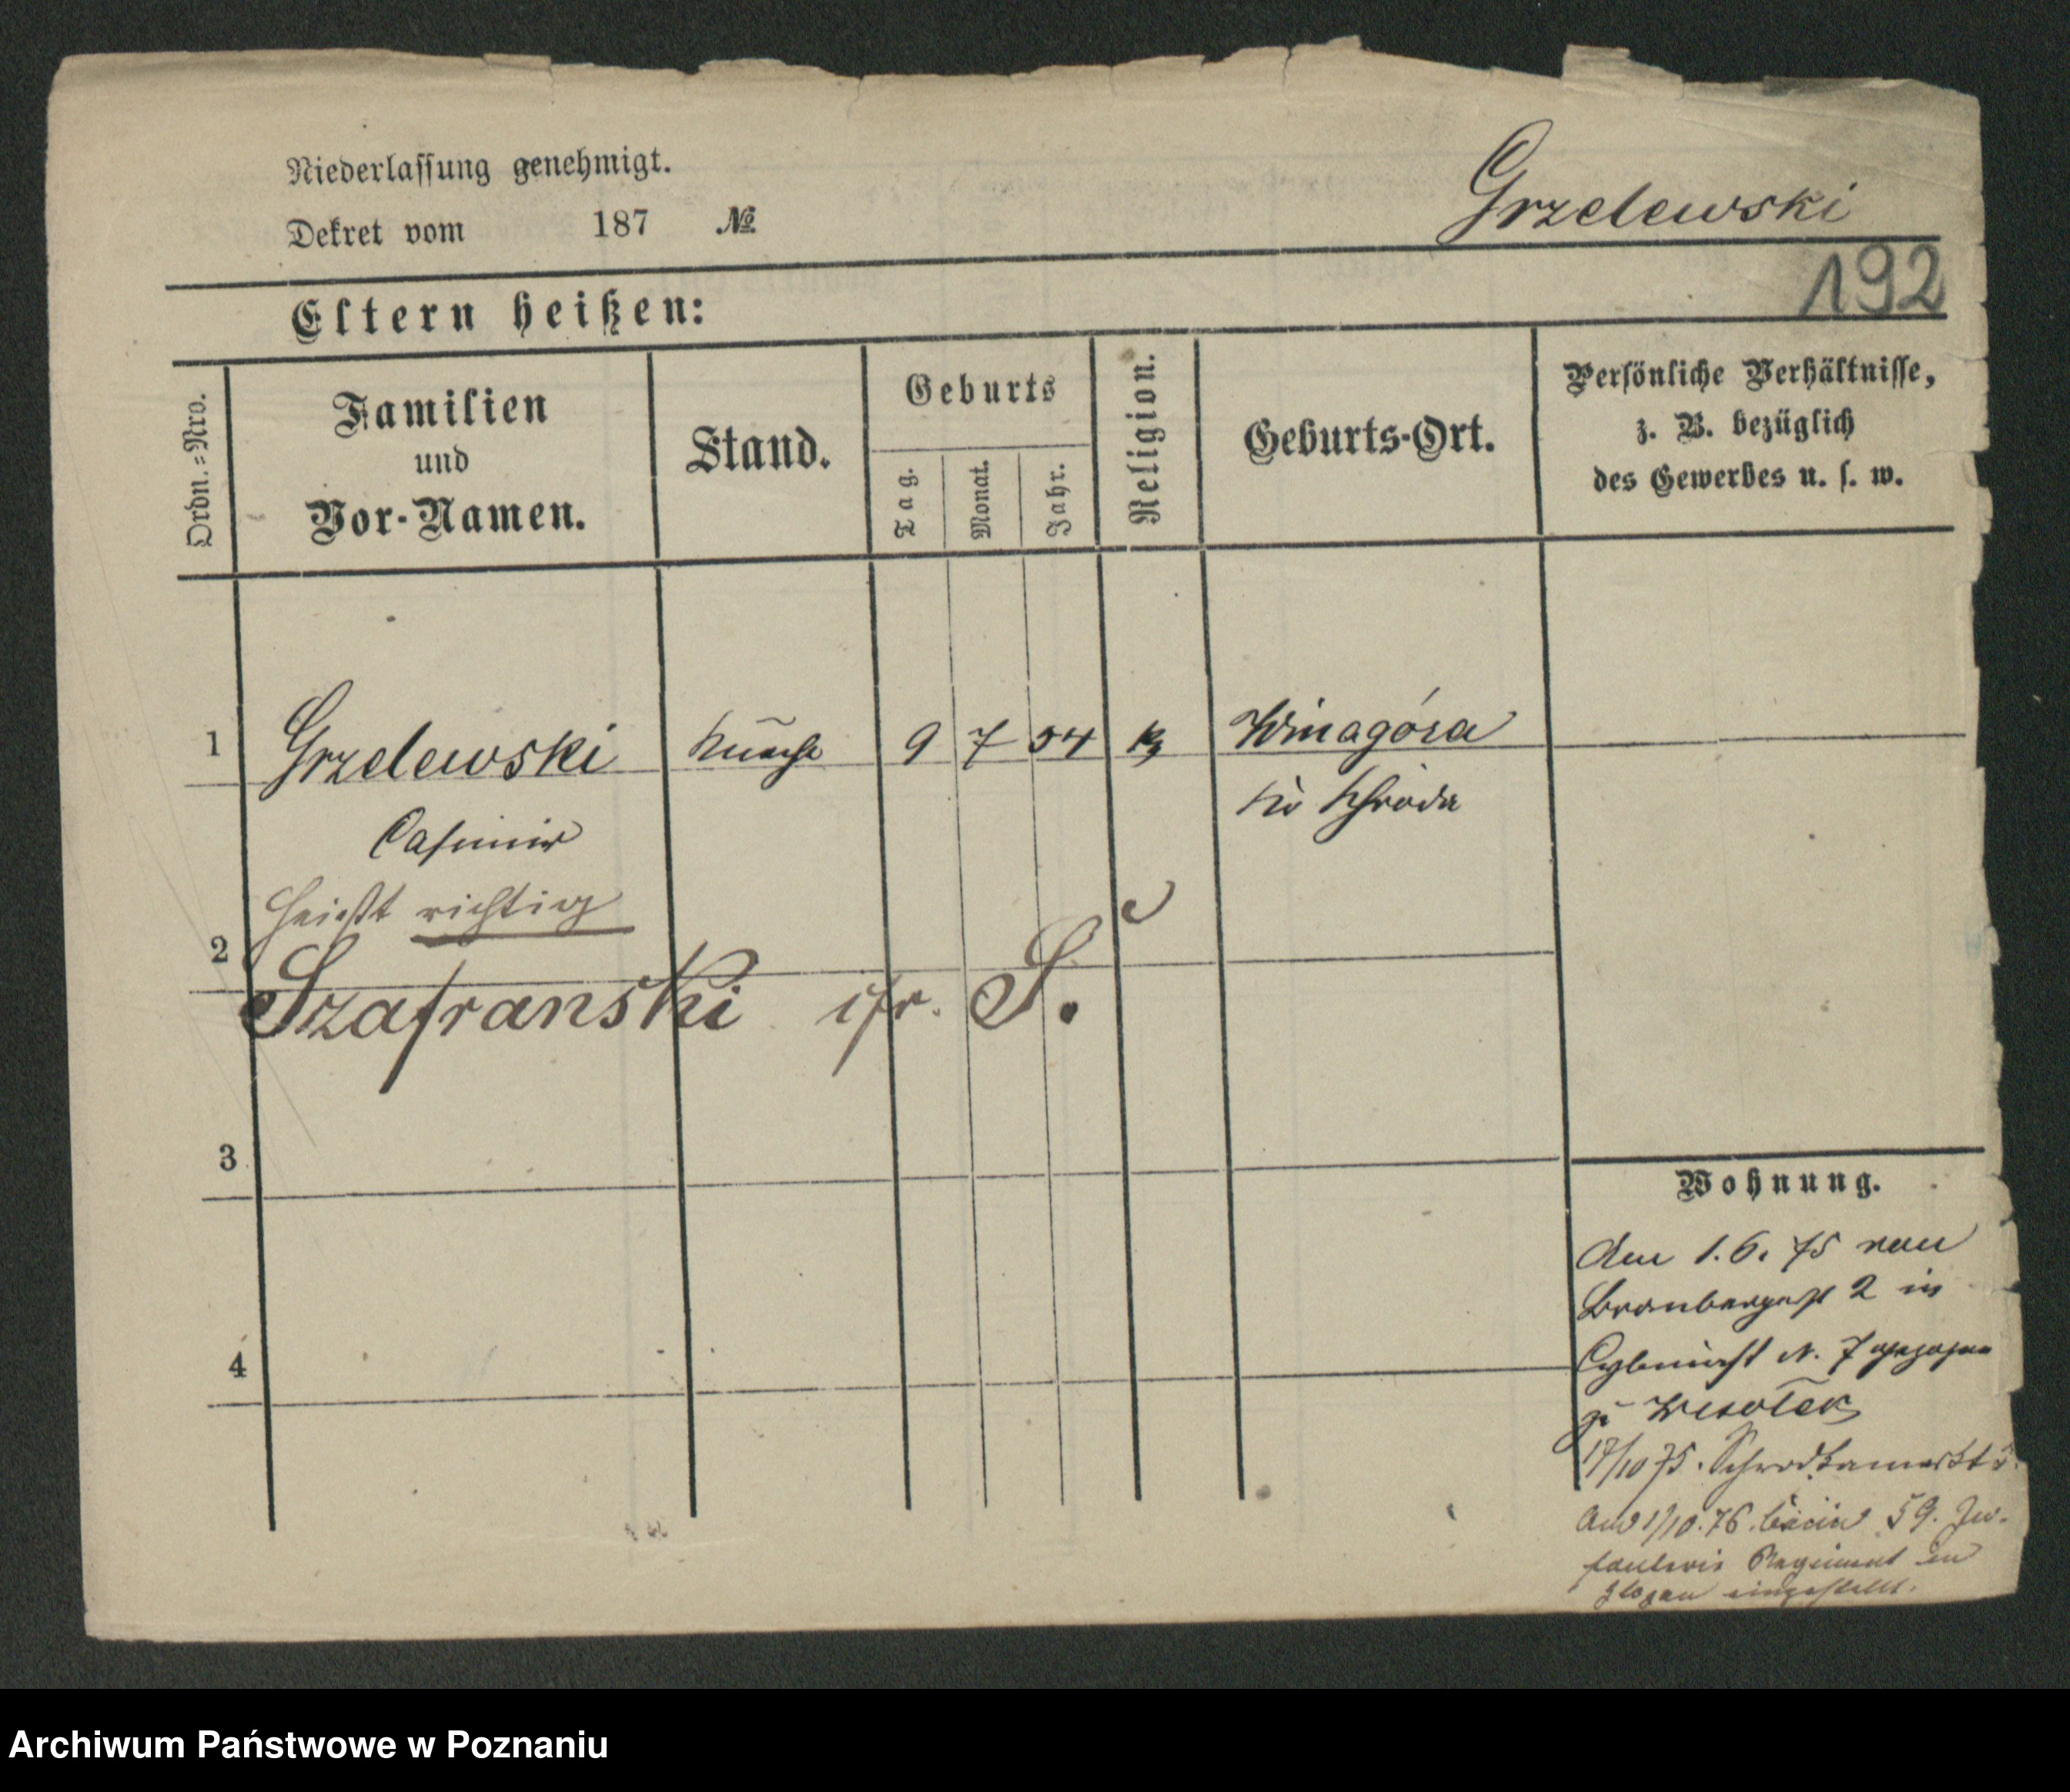 Niederlassung genehmigt.
Dekret vom 187 №
Grzelewski
192
Eltern heißen:
Ordn.=Nro.
Familien
und
Vor-Namen.
Stand.
Geburts
Tag.
Monat.
Jahr.
Religion.
Geburts-Ort.
Persönliche Verhältnisse,
z. B. bezüglich
des Gewerbes u. s. w.
1 Grzelewski 9 7 54 k Winagóra
Casimir
Kr Schroda
heißt richtig
2
Szafranski S.
3
4
Wohnung.
Am 1.6.75 von
Brombergerst 2 in
Cybinast N. 7
zu Wesolek
17/10 75. Schrodkamarkt
Am 1/10.76. beim 59. In-
fanterie Regiment in
Glogau eingestellt.
Archiwum Państwowe w Poznaniu